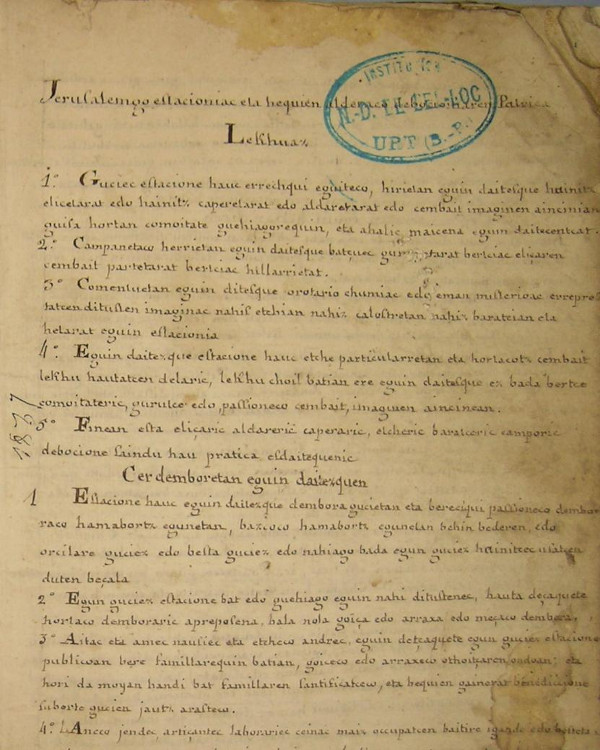 Jerusalemgo estacioniac eta hequien aldereco debocionearen Patrica
Lekhuaz
INSTITUT
N.-D. LE BEL-LOC
URT (B.-P.)
1º. Guciec estacione hauc errechqui eguiteco, hirietan eguin daitesque hainitz
elicetarat edo hainitz caperetarat edo aldaretarat edo cembait imaginen aincinian
guisa hortan comoitate guehiagorequin, eta ahalic maicena eguin daitecentcat.
2º. Campanetaco herrietan eguin daitesque batçuec tarat bertciac eliçaren
cembait partetarat bertciac hillarrietat.
3º Comentuetan eguin ditesque orotario chumiac edo eman misterioac errepre
tatcen ditusten imaginac nahis etchian nahiz calostretan nahiz baratcian eta
hetarat eguin estacionia
4º. Eguin daitezque estacione hauc etche particularretan eta hortacotz cembait
lekhu hautatcen delaric, lekhu choil batian ere eguin daitesque ez bada bertce
comoitateric, gurutce edo, passioneco cembait, imaginen aincinean.
1837
5º Finean esta elicaric aldareric caperaric, etcheric baratceric camporic
debocione saindu hau pratica esdaitequenic
Cer demboretan eguin daitezquen
1 Estacione hauc eguin daitezque dembora gucietan eta bereciqui passioneco dembo
raco hamabortz egunetan, bazcoco hamabortz egunetan behin bederen, edo
orcilare guciez edo besta guciez edo nahiago bada egun guciez hainitcec usatcen
duten beçala
2º Egun guciez estacione bat edo guehiago eguin nahi ditustenec, hauta deçaquete
hortaco demboraric apreposena, hala nola goiça edo arraxa edo meçaco dembora.
3º Aitac eta amec nausiec eta etcheco andrec, eguin detçaquete egun guciez estacione
publicoan bere famillarequin batian, goiceco edo arraxeco othoitçaren ondoan; eta
hori da moyan handi bat famillaren santificatceco, eta hequien gainerat benediccione
suborte gucien jautz arasteco.
4º. Laneco jendec, artiçantec laborariec ceinac mais occupatcen baitire igande edo bestetz